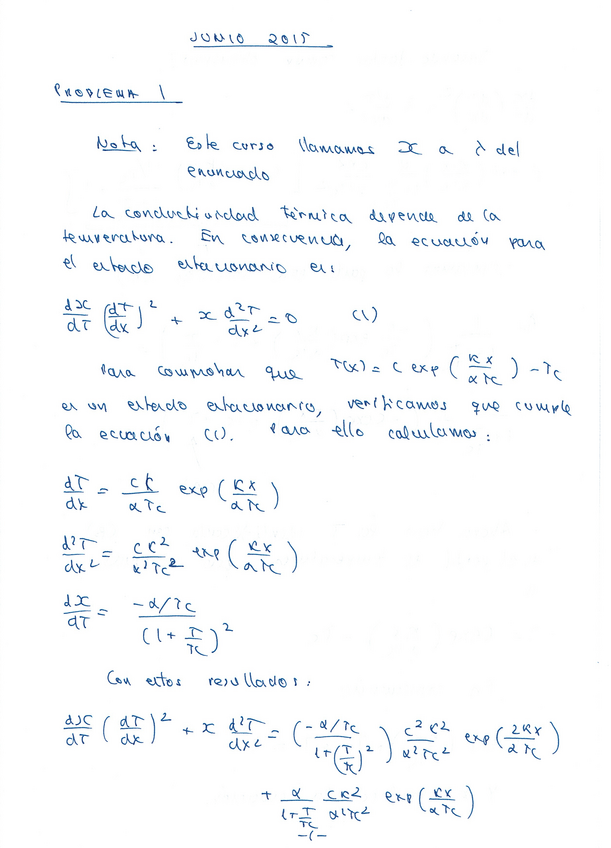 JUNIO 2015
PROBLEMA 1
Nota: Este curso llamamos ϰ a λ del
enunciado
La conductividad térmica depende de la
temperatura. En consecuencia, la ecuación para
el estado estacionario es:
dϰ/dT (dT/dx)² + ϰ d²T/dx² = 0 (1)
Para comprobar que T(x) = C exp(Kx/αTc) - Tc
es un estado estacionario, verificamos que cumple
la ecuación (1). Para ello calculamos:
dT/dx = CK/αTc exp(Kx/αTc)
d²T/dx² = CK²/α²Tc² exp(Kx/αTc)
dϰ/dT = -α/Tc / (1+T/Tc)²
Con estos resultados:
dϰ/dT (dT/dx)² + ϰ d²T/dx² = (-α/Tc / 1+(T/Tc)²) C²K²/α²Tc² exp(2Kx/αTc)
+ α/(1+T/Tc) CK²/α²Tc² exp(Kx/αTc)
-1-